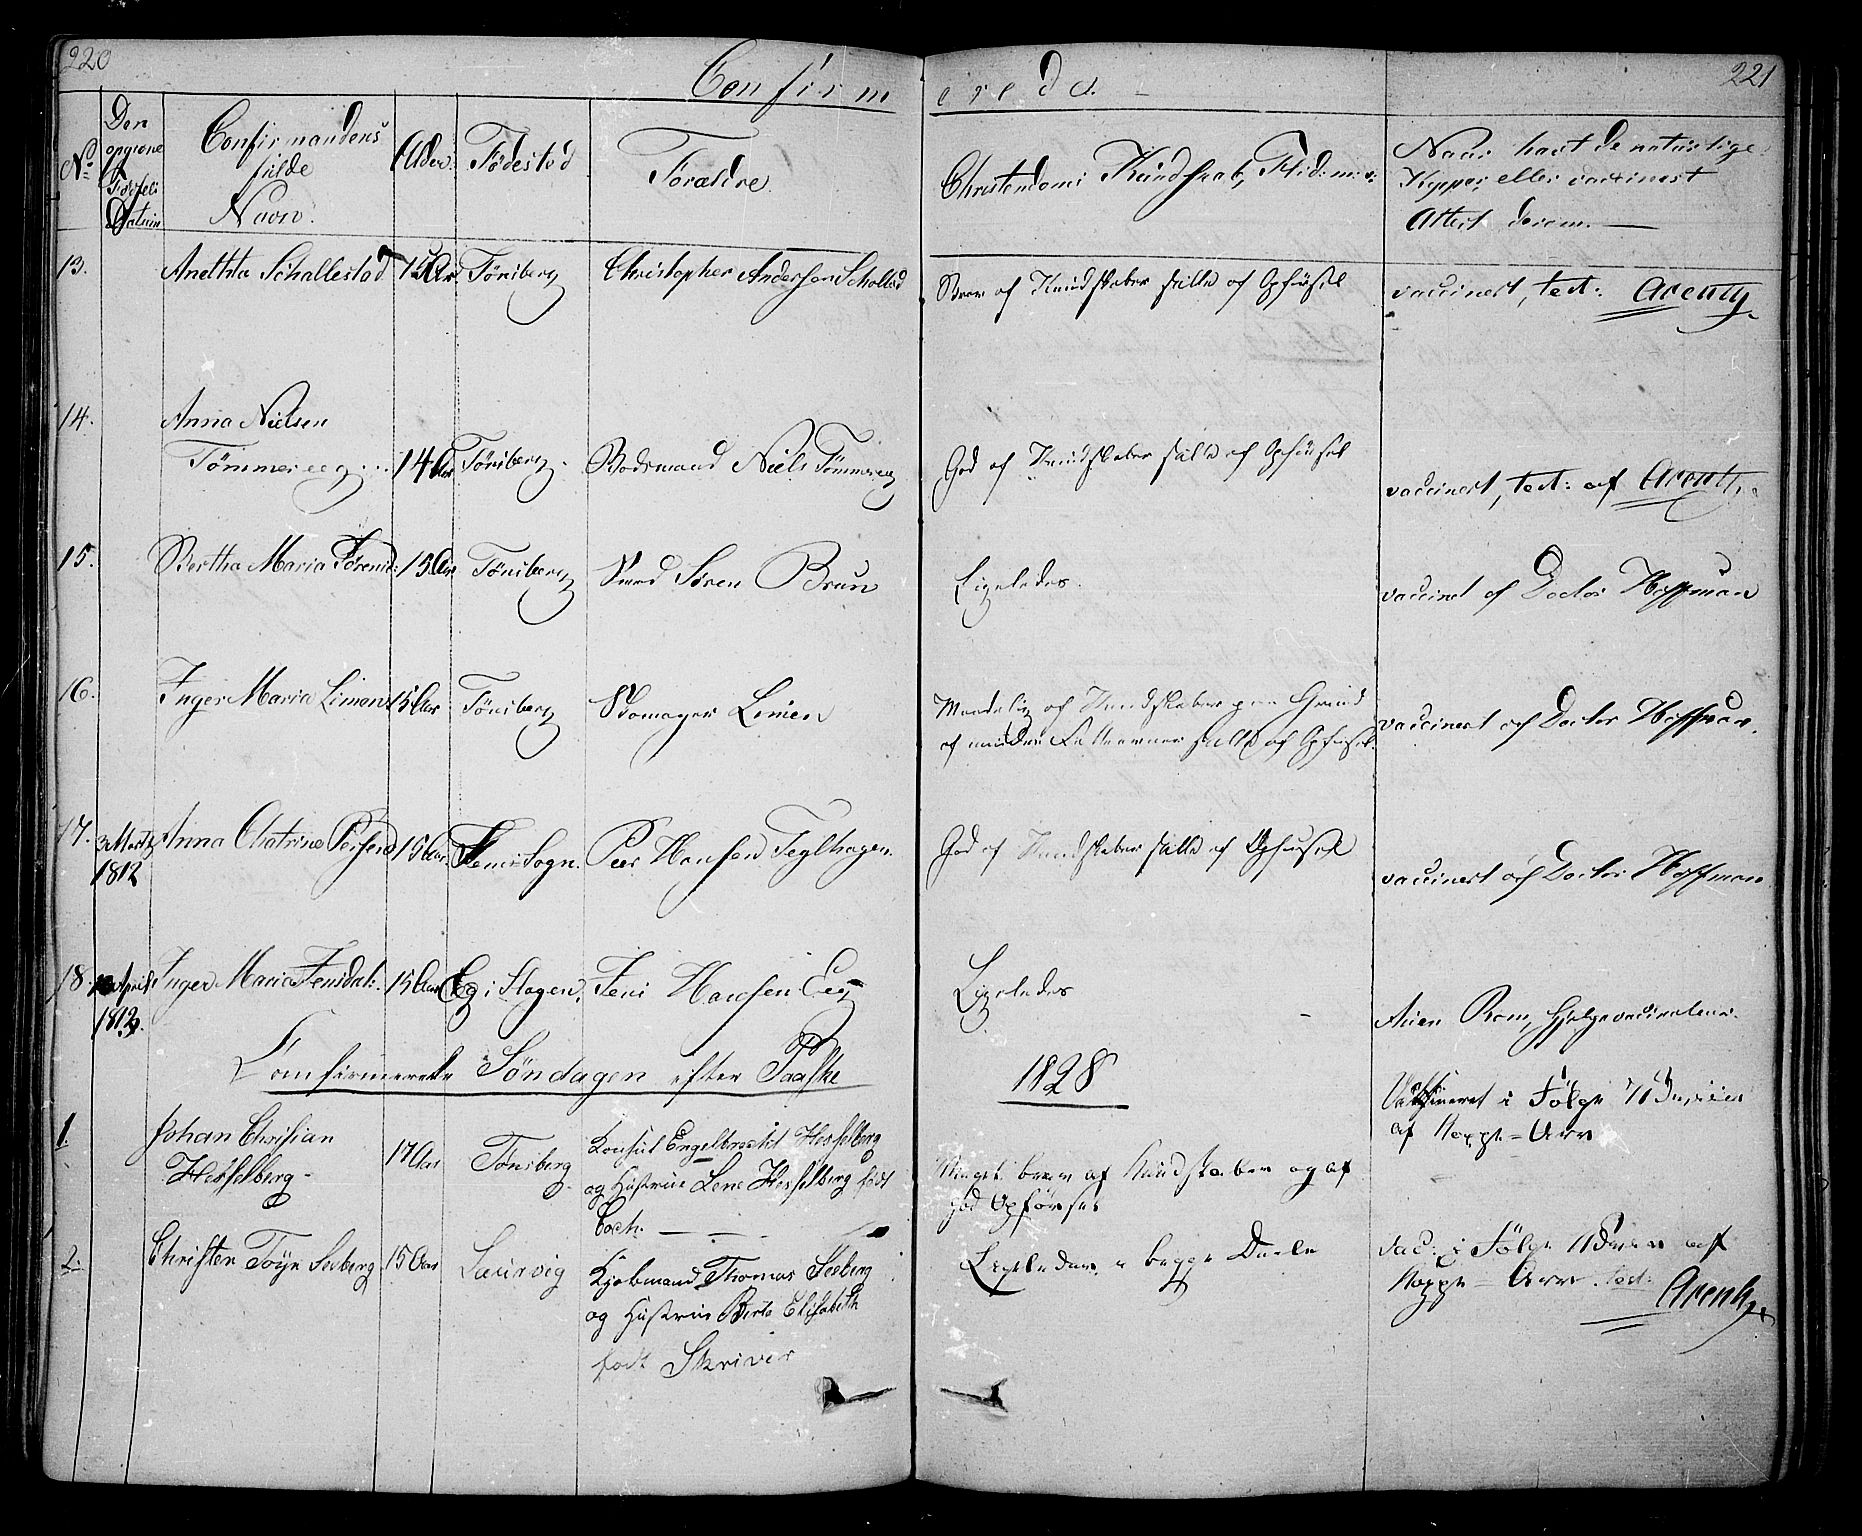 220
Confirm
erede.
221
No
Den
opgivne
Fødsels
Datum
Confirmandens
fulde
Navn.
Alder.
Fødested
Forældre.
Christendoms Kundskab, Flid
Naar havt de naturlige
Kopper eller vaccinert
Attest derom.
13.
Anethta Schallestad
15 Aar
Tønsberg
Christopher Andersen
Brav af Kundskaber stille af Opførsel
vaccinert, test: Arentz
14.
Anna Nielsen
Tømmereeg
14 Aar
Tønsberg
Niels Tømmereeg
God af Kundskaber stille af Opførsel
vaccinert, test: af Arentz
15.
Bertha Maria
15 Aar
Tønsberg
Smed Søren Brun
Ligeledes.
vaccinert af Doctor Hoffman
16.
Inger Maria Limen
15 Aar
Tønsberg
Skomager Limen
Maadelig af Kundskaber paa Grund
af mindre stille af Opførsel.
vaccinert af Doctor Hoffman.
17.
3 Martz
1812
Anna Chatrine
15 Aar
Sems Sogn.
Peer Hansen Teglhagen.
God af Kundskaber stille af Opførsel
vaccinert af Doctor Hoffman
18.
April
1812.
Inger Maria Jensdat:
15 Aar
Eeg i Slagen.
Jens Hansen Eeg
Ligeledes
Rom, Hjelpevaccinateur.
Confirmerede Søndagen efter Paaske
1828
1.
Johan Chrisian
Hesselberg
17 Aar
Tønsberg
Konsul Engelbrecht Hesselberg
og Hustrue Lene Hesselberg født
Coch.
Meget brav af Kundskaber og af
god Opførsel
Vaksineret i Følge
af Koppe-Arr
2.
Christen Toÿr Seeberg
15 Aar
Laurvig
Kjøbmand Thomas Seeberg
og Hustrue Berte Elisabeth
født Skriver
Ligeledes i begge Dele
vac: i Følge af
Koppe-Arr. test:
Arentz